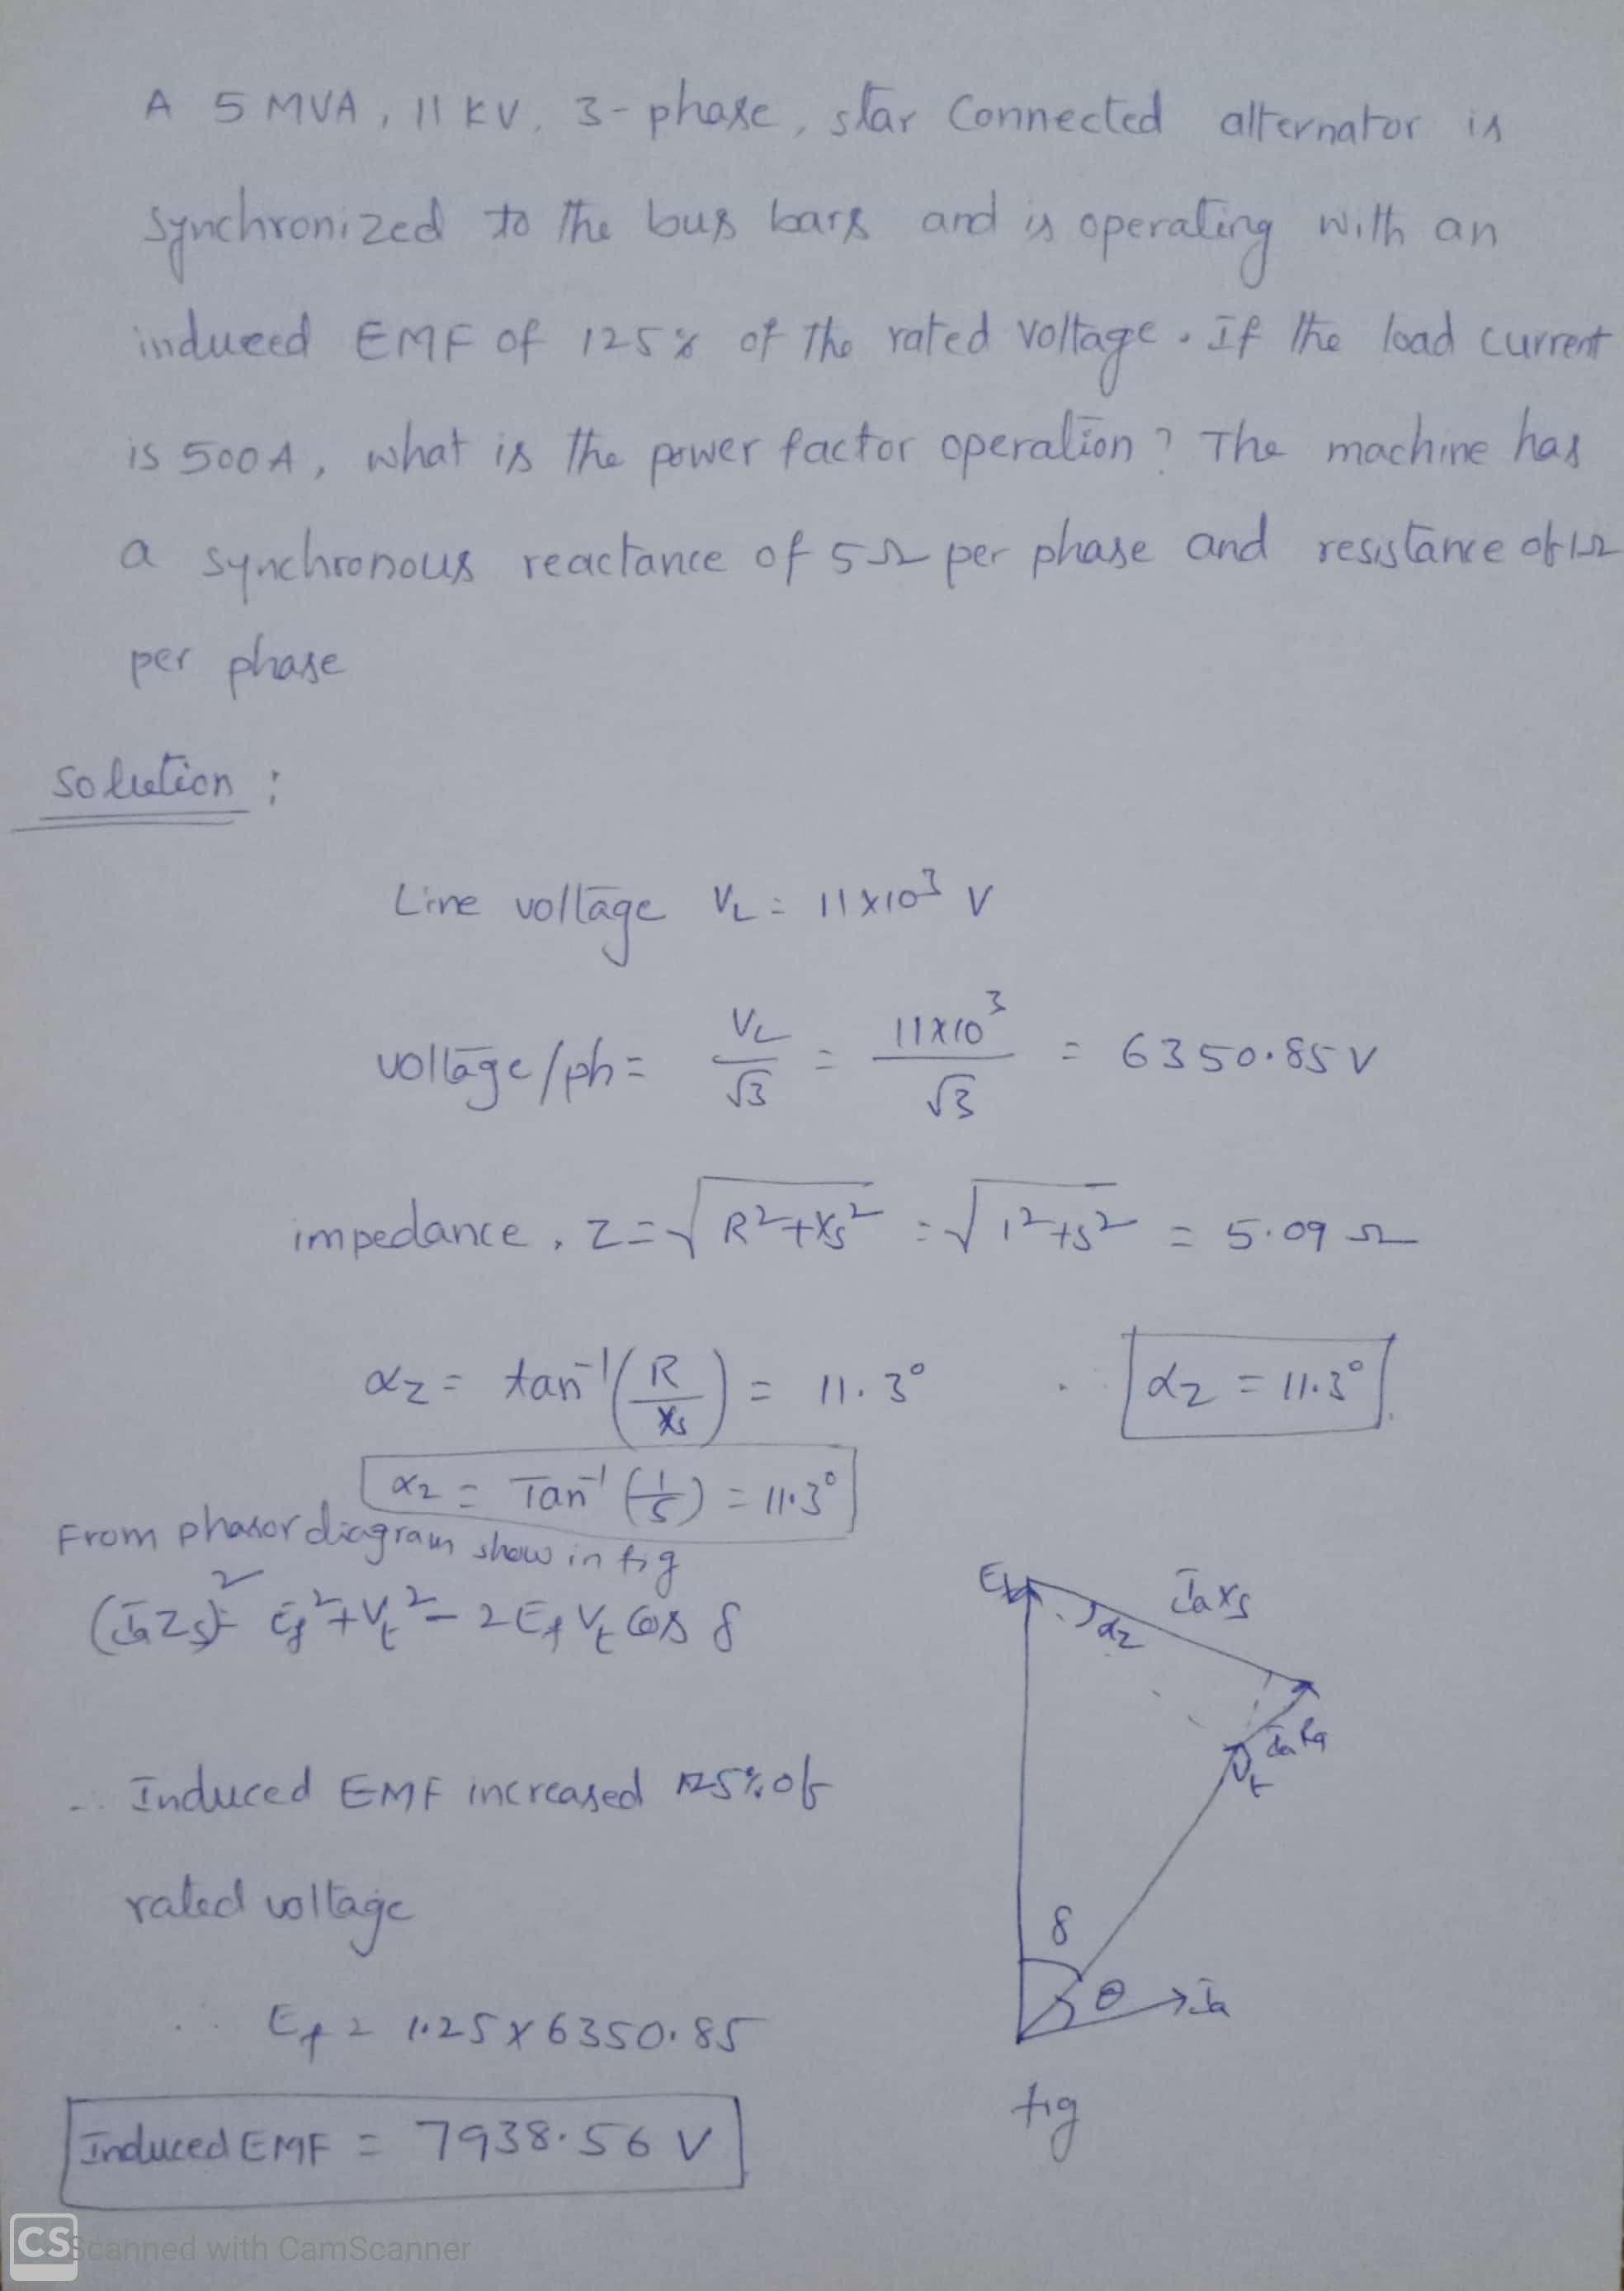 A 5 MVA, 11 KV, 3-phase, star Connected alternator is
synchronized to the bus bars and is operating with an
induced EMF of 125% of the rated voltage. If the load current
is 500A, what is the power factor operation? The machine has
a synchronous reactance of 5Ω per phase and resistance of 1Ω
per phase
solution:
Line voltage V_L = 11×10³ V
voltage/ph = V_L/√3 = 11×10³/√3 = 6350.85 V
impedance, Z = √R²+Xs² = √1²+5² = 5.09 Ω
αz = tan⁻¹(R/Xs) = 11.3° αz = 11.3°
αz = Tan⁻¹(1/5) = 11.3°
From phasor diagram show in fig
(IaZs)² = Ef²+Vt² - 2EfVt cos δ
Ef IaXs
αz
IaRa
Vt
∴ Induced EMF increased 125% of
rated voltage
δ
θ Ia
∴ Ef = 1.25 × 6350.85
fig
Induced EMF = 7938.56 V
CS Scanned with CamScanner